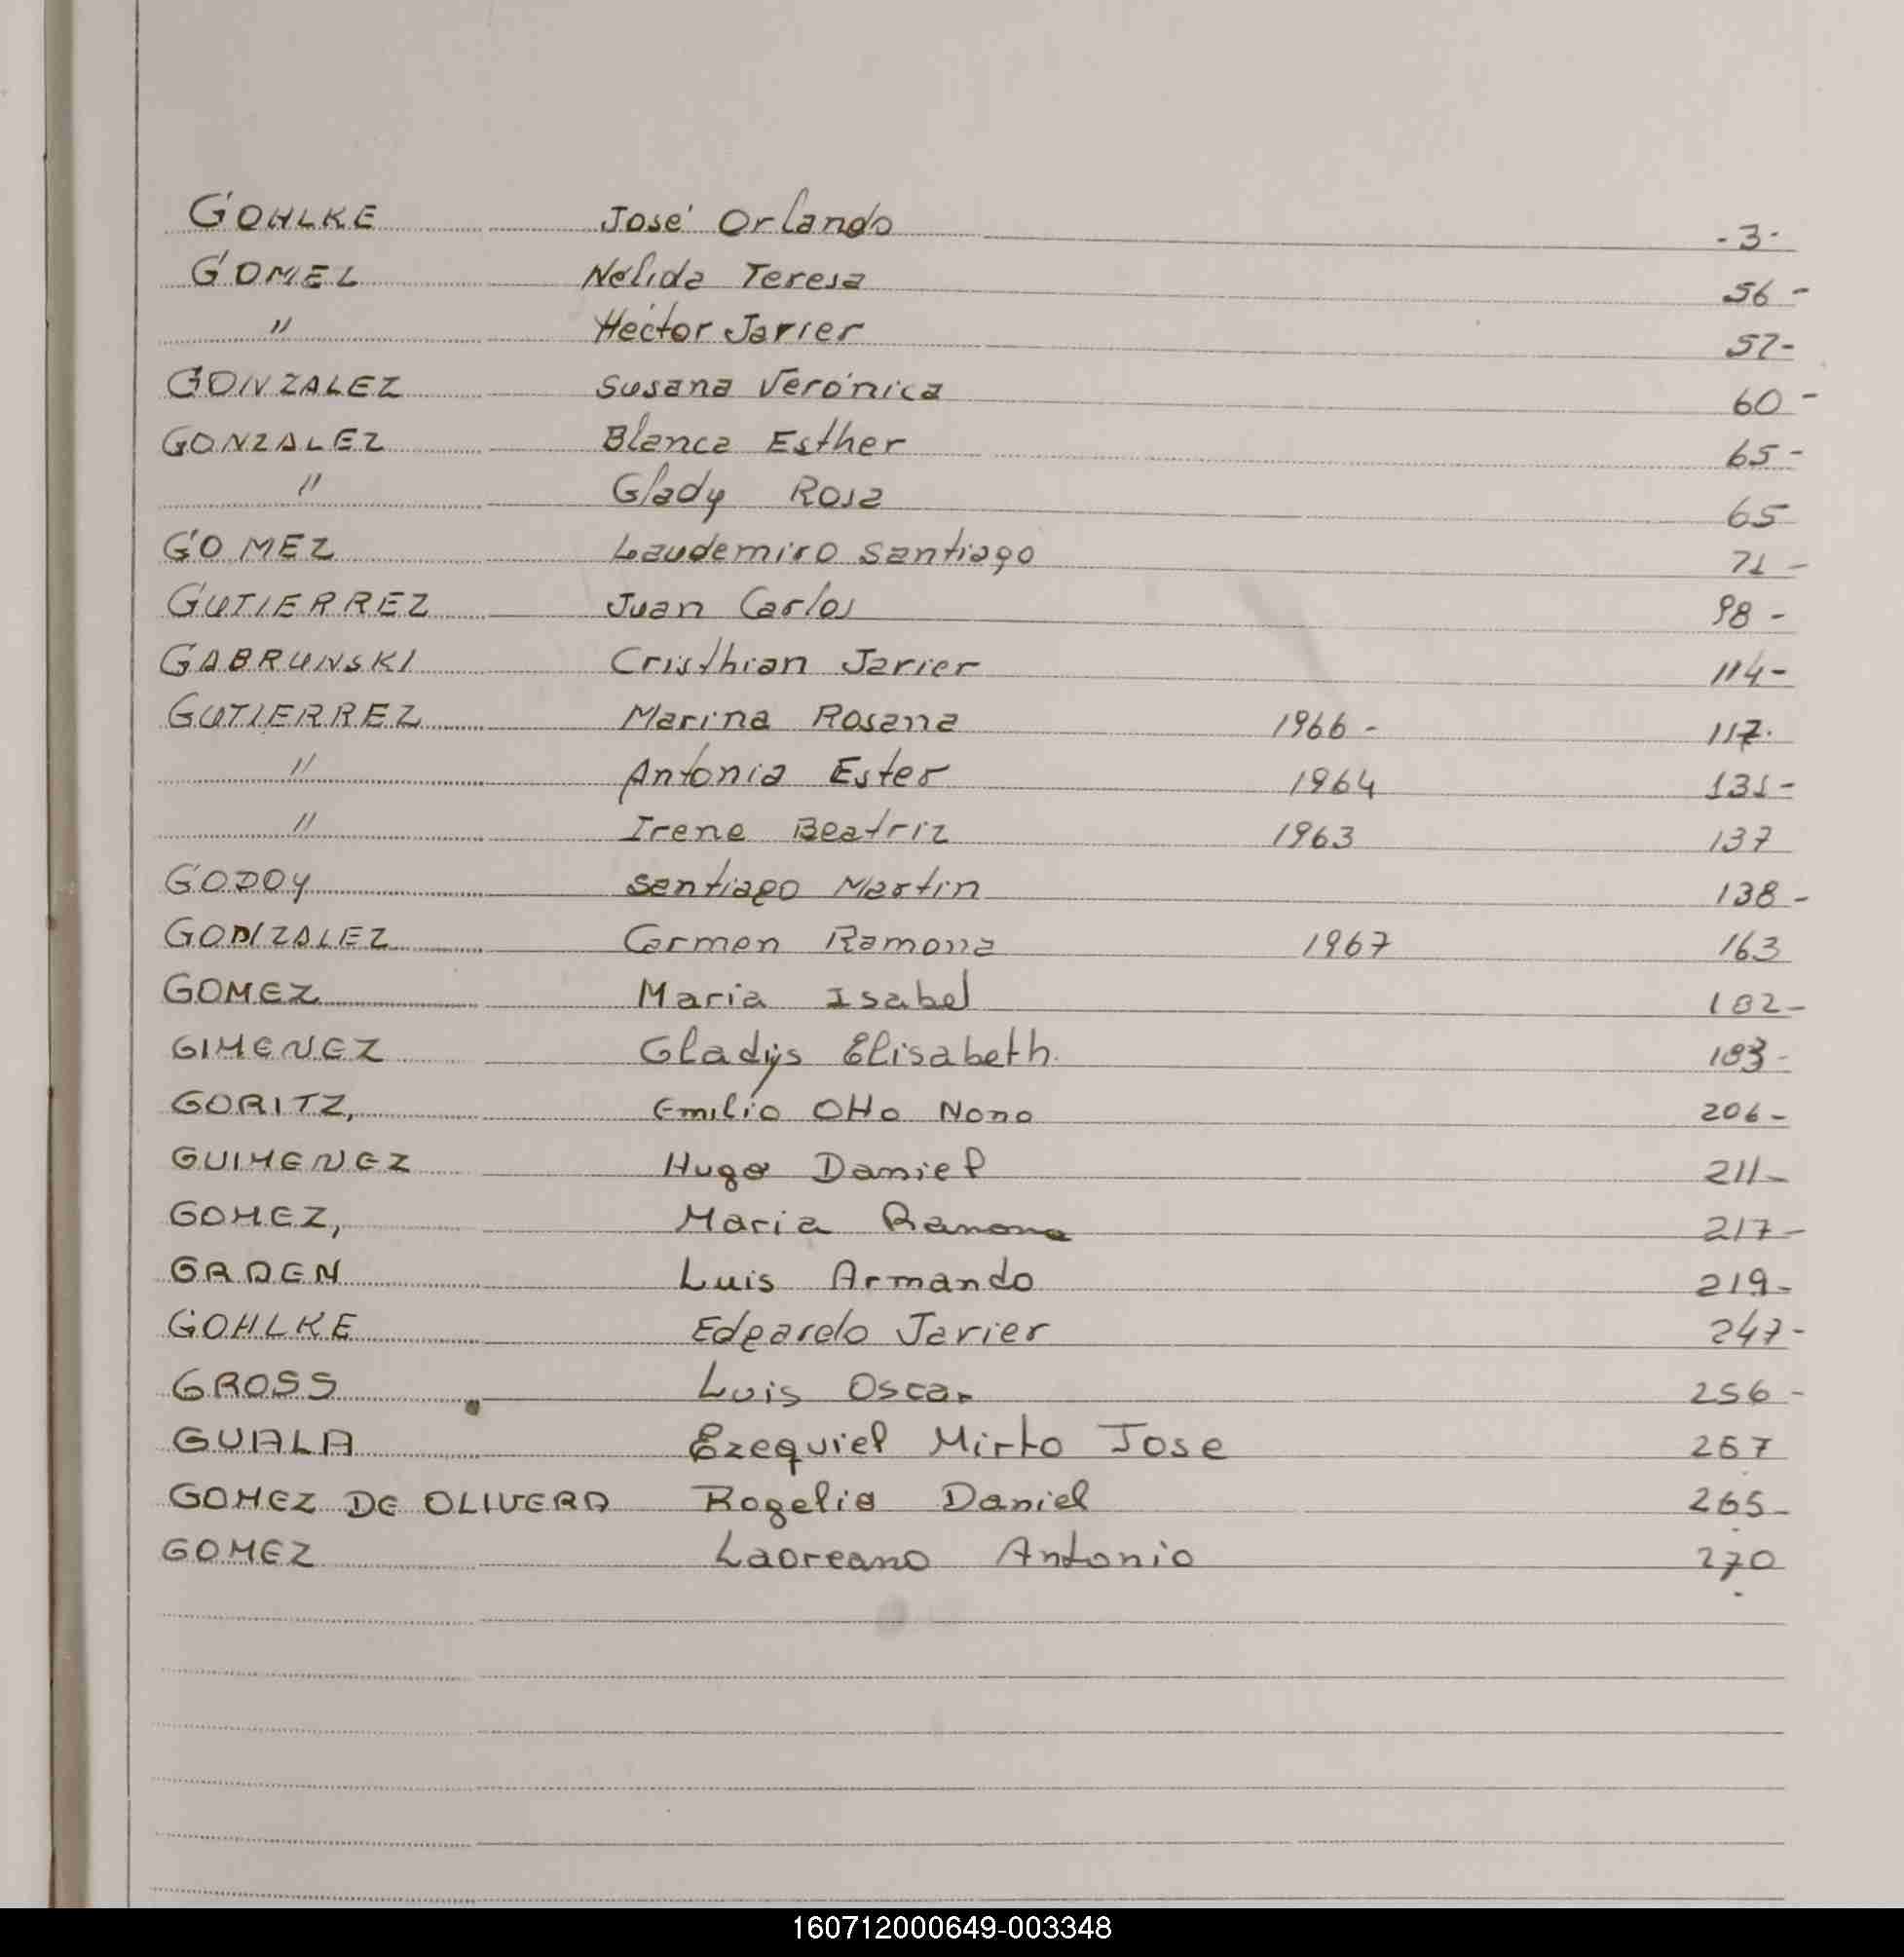 GOHLKE José Orlando -3-
GOMEL Nélida Teresa 56-
" Héctor Javier 57-
GONZALEZ Susana Verónica 60-
GONZALEZ Blanca Esther 65-
" Glady Rosa 65
GOMEZ Laudemiro Santiago 71-
GUTIERREZ Juan Carlos 98-
GABRUNSKI Cristhian Javier 114-
GUTIERREZ Marina Rosana 1966- 117.
" Antonia Ester 1964 131-
" Irene Beatriz 1963 137
GODOY Santiago Martin 138-
GONZALEZ Carmen Ramona 1967 163
GOMEZ Maria Isabel 182-
GIMENEZ Gladys Elisabeth. 183-
GORITZ, Emilio Otto Nono 206-
GUIMENEZ Hugo Daniel 211-
GOMEZ, Maria Ramona 217-
GRAEN Luis Armando 219-
GOHLKE Edgardo Javier 247-
GROSS Luis Oscar 256-
GUALA Ezequiel Mirto Jose 267
GOMEZ DE OLIVERA Rogelio Daniel 265-
GOMEZ Laoreano Antonio 270
160712000649-003348